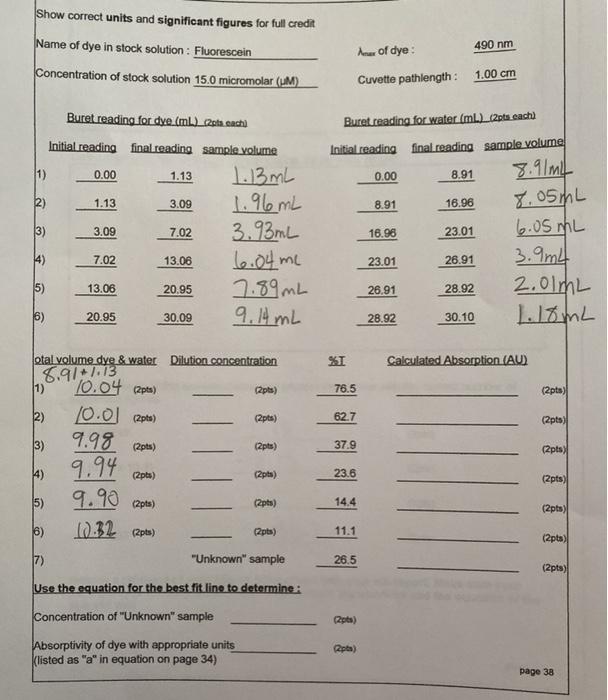 Show correct units and significant figures for full credit
Name of dye in stock solution : Fluorescein λmax of dye : 490 nm
Concentration of stock solution 15.0 micromolar (µM) Cuvette pathlength : 1.00 cm
Buret reading for dye (mL) (2pts each) Buret reading for water (mL) (2pts each)
Initial reading final reading sample volume Initial reading final reading sample volume
1) 0.00 1.13 1.13mL 0.00 8.91 8.91mL
2) 1.13 3.09 1.96mL 8.91 16.96 8.05mL
3) 3.09 7.02 3.93mL 16.96 23.01 6.05mL
4) 7.02 13.06 6.04mL 23.01 26.91 3.9mL
5) 13.06 20.95 7.89mL 26.91 28.92 2.01mL
6) 20.95 30.09 9.14mL 28.92 30.10 1.18mL
otal volume dye & water Dilution concentration %T Calculated Absorption (AU)
8.91+1.13
1) 10.04 (2pts) (2pts) 76.5 (2pts)
2) 10.01 (2pts) (2pts) 62.7 (2pts)
3) 9.98 (2pts) (2pts) 37.9 (2pts)
4) 9.94 (2pts) (2pts) 23.6 (2pts)
5) 9.90 (2pts) (2pts) 14.4 (2pts)
6) 10.32 (2pts) (2pts) 11.1 (2pts)
7) "Unknown" sample 26.5 (2pts)
Use the equation for the best fit line to determine :
Concentration of "Unknown" sample (2pts)
Absorptivity of dye with appropriate units (2pts)
(listed as "a" in equation on page 34)
page 38